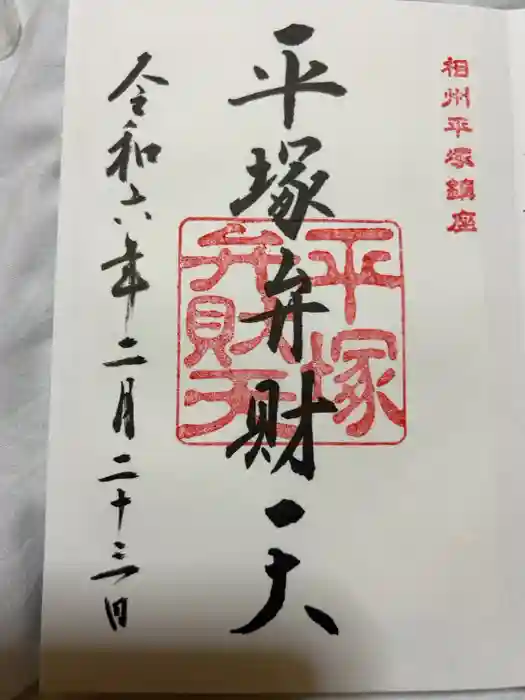 相州平塚鎮座
平塚弁財天
平塚
弁財天
令和六年二月二十三日